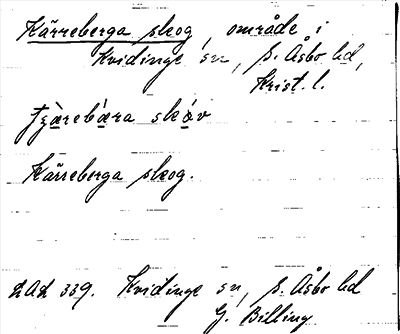 Kärreberga skog, område i
Kvidinge sn, S. Åsbo hd,
Krist. l.
skåv
Kärreberga skog.
LAL 339. Kvidinge sn, S. Åsbo hd
G. Billing